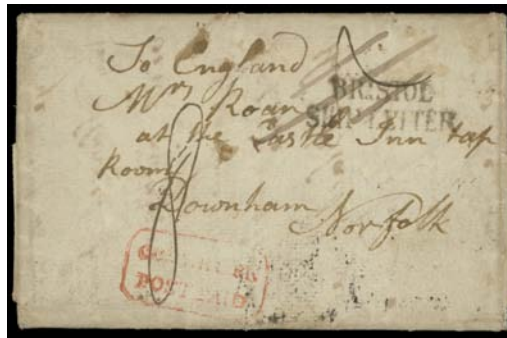 To England
BRISTOL
SHIP LETTER
Mrs Roan
at the Castle Inn tap
Room
Downham
Norfolk
POST PAID